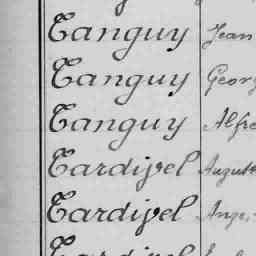 Tanguy Jean
Tanguy Georg
Tanguy Alfre
Tardivel August
Tardivel Ange
Tardivel